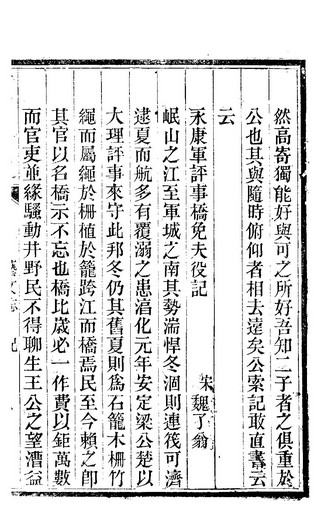 然高寄獨能好與可之所好吾知二子者之俱重於
公也其與隨時俯仰者相去遠矣公索記敢直書云
云
永康軍評事橋免夫役記
宋魏了翁
岷山之江至軍城之南其勢湍悍冬涸則連筏可濟
逮夏而航多有覆溺之患淳化元年安定梁公楚以
大理評事來守此邦冬仍其舊夏則為石籠木柵竹
繩而屬繩於柵植於籠跨江而橋焉民至今賴之卽
其官以名橋示不忘也橋比歲必一作費以鉅萬數
而官吏並緣騷動井野民不得聊生王公之望漕益
藝文志 記